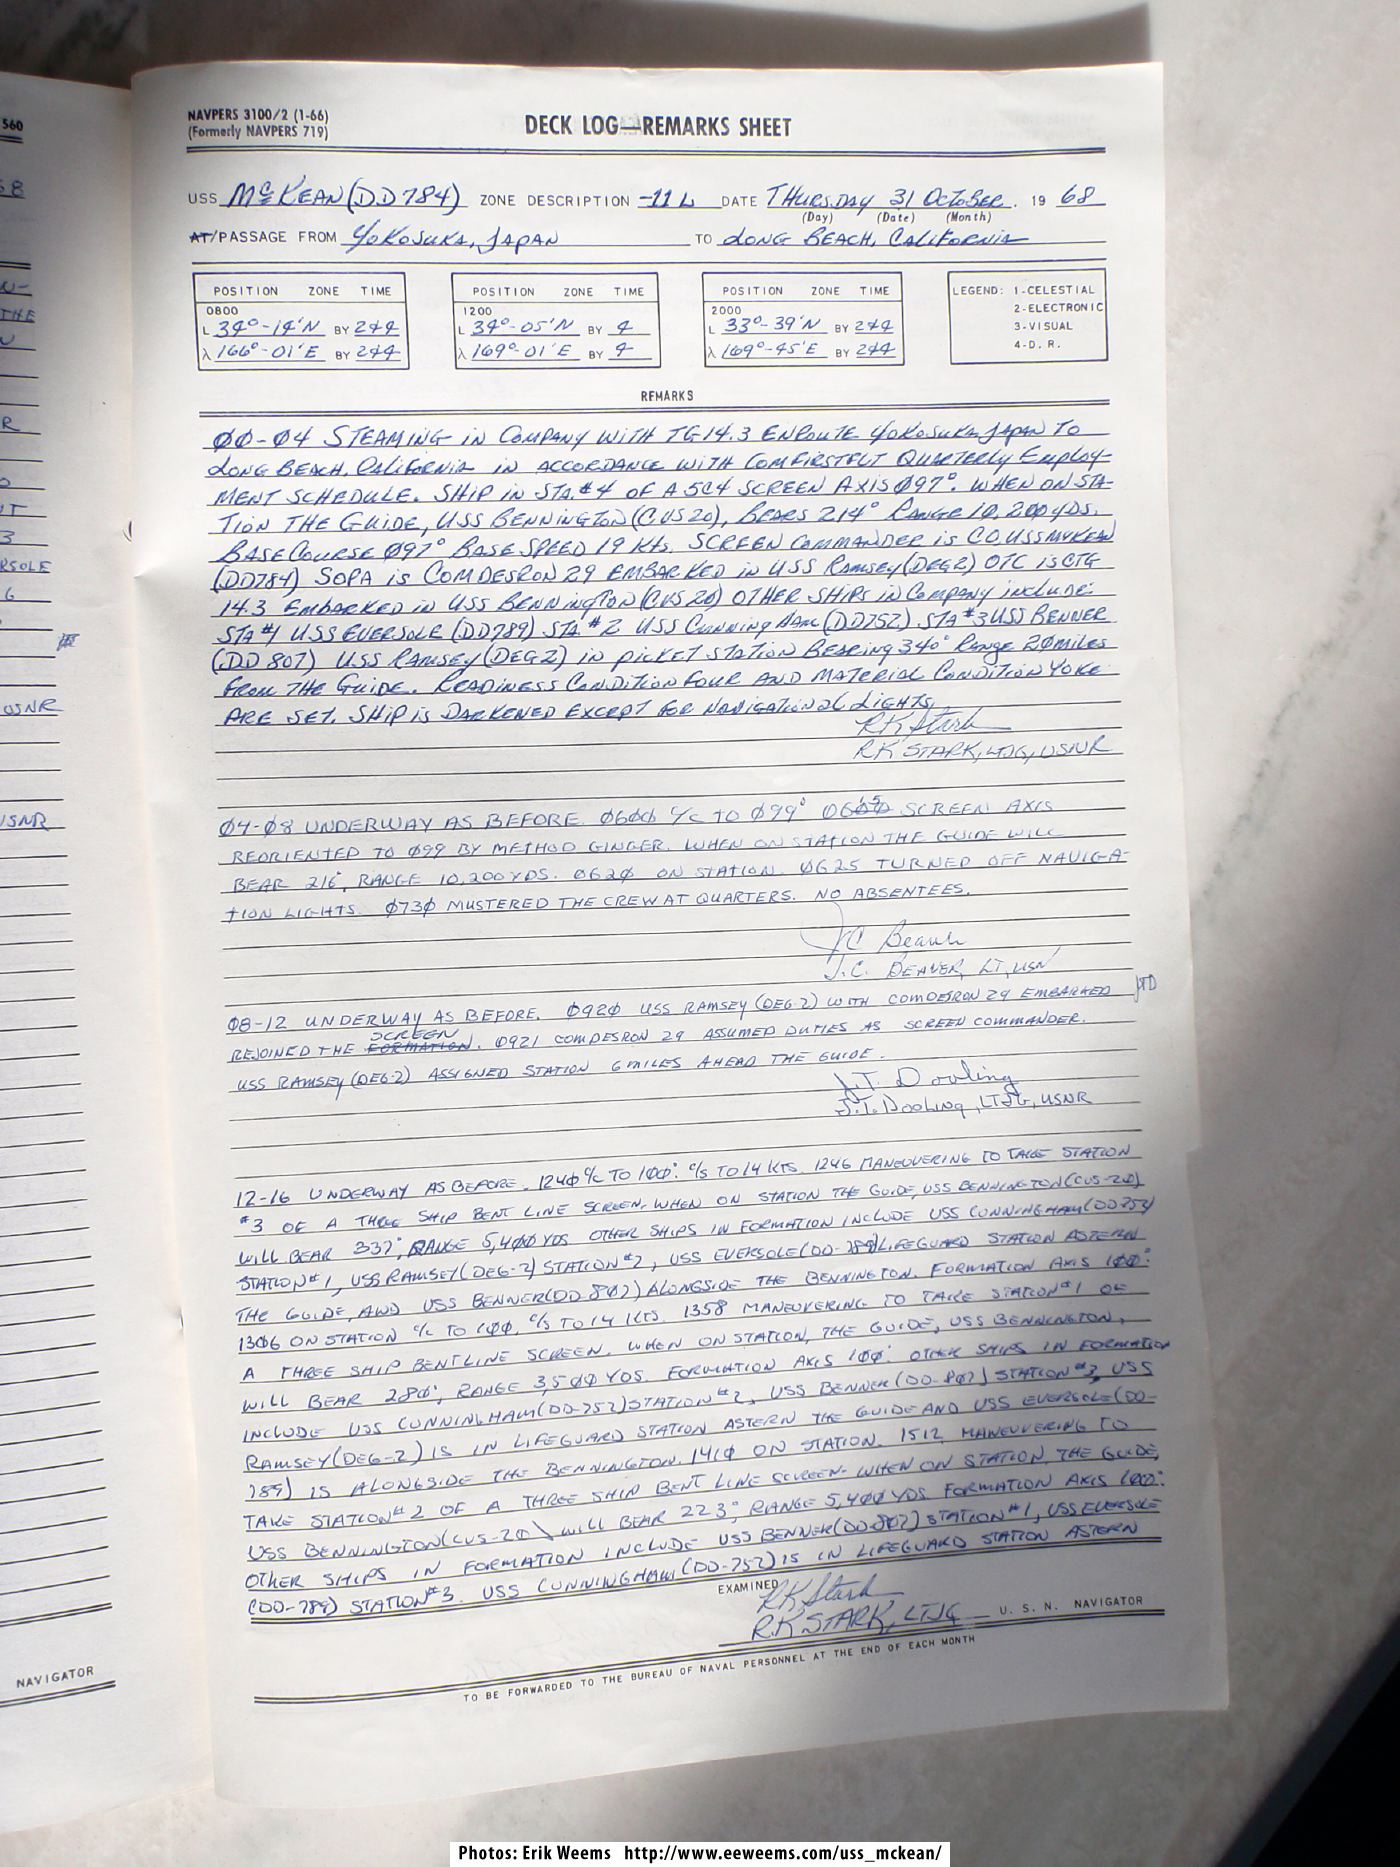 560
58
N-
THE
R
O
T
3
RSOLE
6
USNR
USNR
NAVIGATOR
NAVPERS 3100/2 (1-66)
(Formerly NAVPERS 719)
DECK LOG—REMARKS SHEET
USS McKEAN (DD784) ZONE DESCRIPTION -11 L DATE THURSDAY 31 OCTOBER 19 68
(Day) (Date) (Month)
AT/PASSAGE FROM YOKOSUKA, JAPAN TO LONG BEACH, CALIFORNIA
POSITION ZONE TIME
0800
L 34°-14'N BY 2+4
λ 166°-01'E BY 2+4
POSITION ZONE TIME
1200
L 34°-05'N BY 4
λ 169°-01'E BY 4
POSITION ZONE TIME
2000
L 33°-39'N BY 2+4
λ 169°-45'E BY 2+4
LEGEND: 1-CELESTIAL
2-ELECTRONIC
3-VISUAL
4-D. R.
REMARKS
ØØ-Ø4 STEAMING IN COMPANY WITH TG 14.3 ENROUTE YOKOSUKA, JAPAN TO
LONG BEACH, CALIFORNIA IN ACCORDANCE WITH COMFIRSTFLT QUARTERLY EMPLOY-
MENT SCHEDULE. SHIP IN STA. #4 OF A 5C4 SCREEN AXIS Ø97°. WHEN ON STA-
TION THE GUIDE, USS BENNINGTON (CVS 20), BEARS 214° RANGE 10,200 YDS.
BASE COURSE Ø97° BASE SPEED 19 KTS. SCREEN COMMANDER IS CO, USS MCKEAN
(DD784) SOPA IS COMDESRON 29 EMBARKED IN USS RAMSEY (DEG2) OTC IS CTG
14.3 EMBARKED IN USS BENNINGTON (CVS 20) OTHER SHIPS IN COMPANY INCLUDE:
STA #1 USS EVERSOLE (DD789) STA #2 USS CUNNINGHAM (DD752) STA #3 USS BENNER
(DD 807) USS RAMSEY (DEG2) IN PICKET STATION BEARING 340° RANGE 20 MILES
FROM THE GUIDE. READINESS CONDITION FOUR AND MATERIAL CONDITION YOKE
ARE SET. SHIP IS DARKENED EXCEPT FOR NAVIGATIONAL LIGHTS.
RK Stark
RK STARK, LTJG, USNR
Ø4-Ø8 UNDERWAY AS BEFORE. Ø6ØØ C/C TO Ø99° SCREEN AXIS
REORIENTED TO Ø99 BY METHOD GINGER. WHEN ON STATION THE GUIDE WILL
BEAR 216°, RANGE 10,200 YDS. Ø62Ø ON STATION. Ø625 TURNED OFF NAVIGA-
TION LIGHTS. Ø73Ø MUSTERED THE CREW AT QUARTERS. NO ABSENTEES.
J.C. Beaver
J.C. BEAVER, LT, USN
Ø8-12 UNDERWAY AS BEFORE. Ø92Ø USS RAMSEY (DEG-2) WITH COMDESRON 29 EMBARKED JTD
SCREEN
REJOINED THE FORMATION. Ø921 COMDESRON 29 ASSUMED DUTIES AS SCREEN COMMANDER.
USS RAMSEY (DEG-2) ASSIGNED STATION 6 MILES AHEAD THE GUIDE.
J.T. Dooling
J.T. Dooling, LTJG, USNR
12-16 UNDERWAY AS BEFORE. 124Ø C/C TO 1ØØ°. C/S TO 14 KTS. 1246 MANEUVERING TO TAKE STATION
#3 OF A THREE SHIP BENT LINE SCREEN. WHEN ON STATION THE GUIDE, USS BENNINGTON (CVS-2Ø)
WILL BEAR 337°, RANGE 5,4ØØ YDS OTHER SHIPS IN FORMATION INCLUDE USS CUNNINGHAM (DD-752)
STATION #1, USS RAMSEY (DEG-2) STATION #2, USS EVERSOLE (DD-789) LIFEGUARD STATION ASTERN
THE GUIDE, AND USS BENNER (DD-8Ø7) ALONGSIDE THE BENNINGTON. FORMATION AXIS 1ØØ°.
13Ø6 ON STATION C/C TO 1ØØ, C/S TO 14 KTS. 1358 MANEUVERING TO TAKE STATION #1 OF
A THREE SHIP BENT LINE SCREEN. WHEN ON STATION, THE GUIDE, USS BENNINGTON,
WILL BEAR 28Ø°, RANGE 3,5ØØ YDS. FORMATION AXIS 1ØØ°. OTHER SHIPS IN FORMATION
INCLUDE USS CUNNINGHAM (DD-752) STATION #2, USS BENNER (DD-8Ø7) STATION #3, USS
RAMSEY (DEG-2) IS IN LIFEGUARD STATION ASTERN THE GUIDE AND USS EVERSOLE (DD-
789) IS ALONGSIDE THE BENNINGTON. 141Ø ON STATION. 1512 MANEUVERING TO
TAKE STATION #2 OF A THREE SHIP BENT LINE SCREEN. WHEN ON STATION, THE GUIDE,
USS BENNINGTON (CVS-2Ø) WILL BEAR 223°, RANGE 5,4ØØ YDS. FORMATION AXIS 1ØØ°.
OTHER SHIPS IN FORMATION INCLUDE USS BENNER (DD-8Ø7) STATION #1, USS EVERSOLE
(DD-789) STATION #3. USS CUNNINGHAM (DD-752) IS IN LIFEGUARD STATION ASTERN
EXAMINED RK Stark
R.K STARK, LTJG U. S. N. NAVIGATOR
TO BE FORWARDED TO THE BUREAU OF NAVAL PERSONNEL AT THE END OF EACH MONTH
Photos: Erik Weems http://www.eeweems.com/uss_mckean/